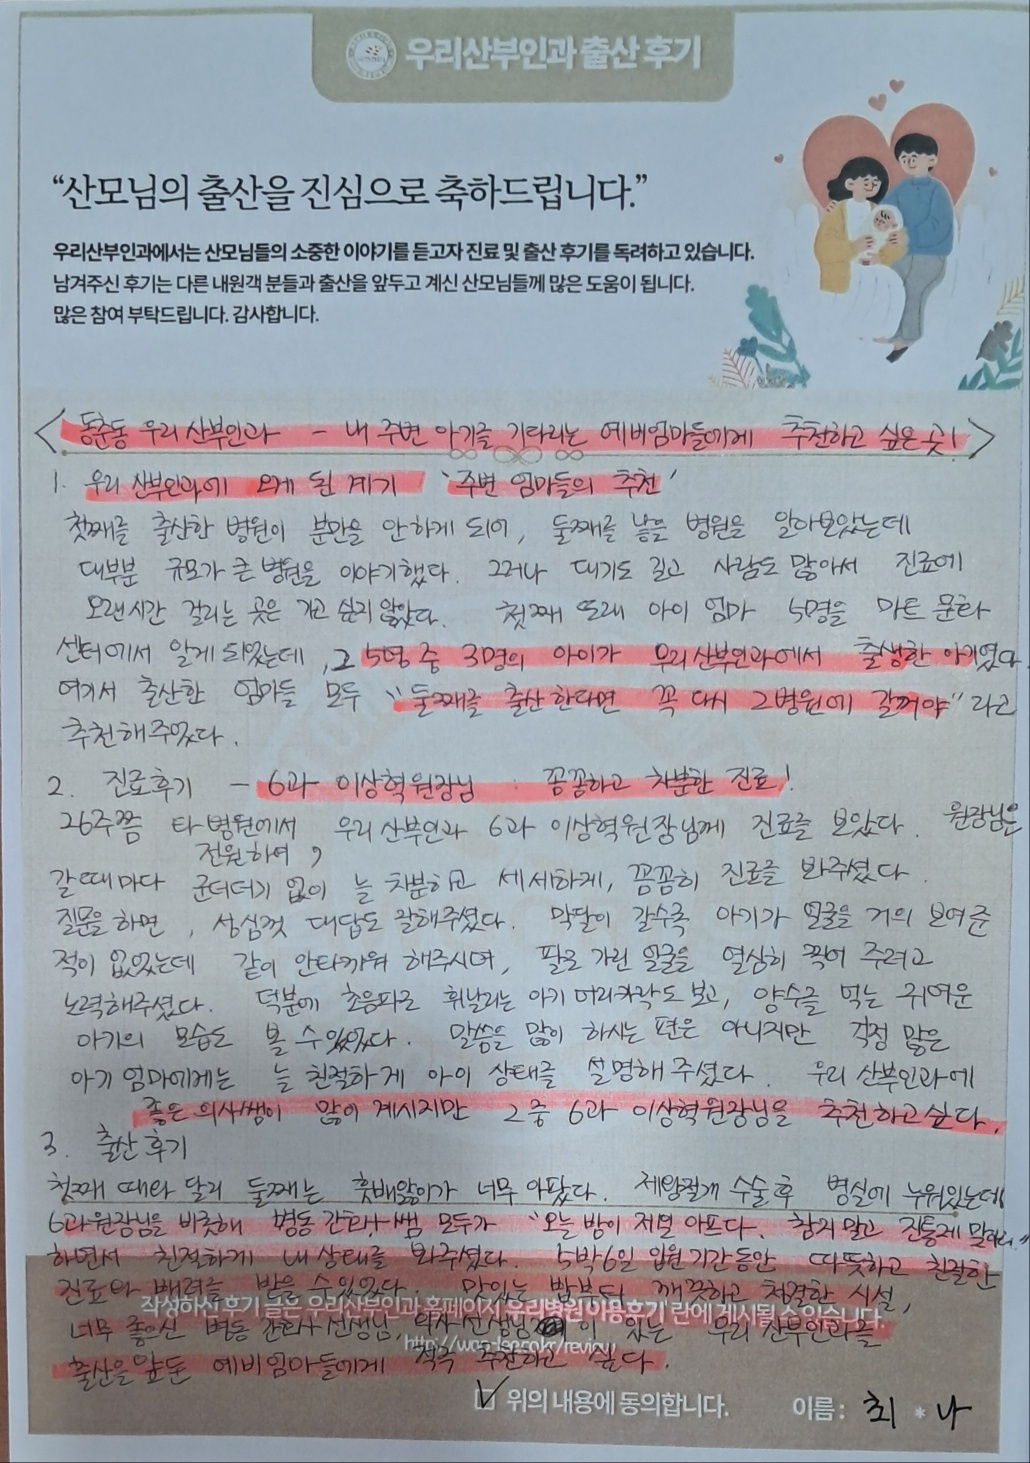 우리산부인과 출산 후기
“산모님의 출산을 진심으로 축하드립니다.”
우리산부인과에서는 산모님들의 소중한 이야기를 듣고자 진료 및 출산 후기를 독려하고 있습니다.
남겨주신 후기는 다른 내원객 분들과 출산을 앞두고 계신 산모님들께 많은 도움이 됩니다.
많은 참여 부탁드립니다. 감사합니다.
<동춘동 우리산부인과 - 내 주변 아기를 기다리는 예비엄마들에게 추천하고 싶은 곳!>
1. 우리 산부인과에 오게 된 계기 '주변 엄마들의 추천'
첫째를 출산한 병원이 분만을 안하게 되어, 둘째를 낳을 병원을 알아보았는데
대부분 규모가 큰 병원을 이야기했다. 그러나 대기도 길고 사람도 많아서 진료에
오랜시간 걸리는 곳은 가고 싶지 않았다. 첫째 또래 아이 엄마 5명을 마트 문화
센터에서 알게 되었는데, 그 5명 중 3명의 아이가 우리산부인과에서 출생한 아기였다.
여기서 출산한 엄마들 모두 "둘째를 출산한다면 꼭 다시 그병원에 갈꺼야" 라고
추천해주었다.
2. 진료후기 - 6과 이상혁원장님 : 꼼꼼하고 차분한 진료!
26주쯤 타병원에서 전원하여, 우리산부인과 6과 이상혁원장님께 진료를 보았다. 원장님은
갈때마다 군더더기 없이 늘 차분하고 세세하게, 꼼꼼히 진료를 봐주셨다.
질문을 하면, 성심껏 대답도 잘해주셨다. 막달이 갈수록 아기가 얼굴을 거의 보여준
적이 없었는데 같이 안타까워 해주시며, 팔로 가린 얼굴을 열심히 찍어 주려고
노력해주셨다. 덕분에 초음파로 휘날리는 아기 머리카락도 보고, 양수를 먹는 귀여운
아기의 모습도 볼 수 있었다. 말씀을 많이 하시는 편은 아니지만 걱정 많은
아기 엄마에게는 늘 친절하게 아이 상태를 설명해 주셨다. 우리 산부인과에
좋은 의사쌤이 많이 계시지만 그 중 6과 이상혁원장님을 추천하고싶다.
3. 출산 후기
첫째 때와 달리 둘째는 훗배앓이가 너무 아팠다. 제왕절개 수술 후 병실에 누워있는데
6과원장님을 비롯해 병동 간호사쌤 모두가 "오늘 밤이 제일 아프다. 참지 말고 진통제 말해라"
하면서 친절하게 내 상태를 봐주셨다. 5박6일 입원 기간동안 따뜻하고 친절한
진료와 배려를 받을 수 있었다. 맛있는 밥부터 깨끗하고 청결한 시설,
작성하신 후기 글은 우리산부인과 홈페이지 우리병원 이용후기 란에 게시될 수 있습니다.
너무 좋으신 병동 간호사 선생님, 의사선생님이 있는 우리 산부인과를
출산을 앞둔 예비엄마들에게 적극 추천하고 싶다.
☑ 위의 내용에 동의합니다. 이름 : 최 * 나